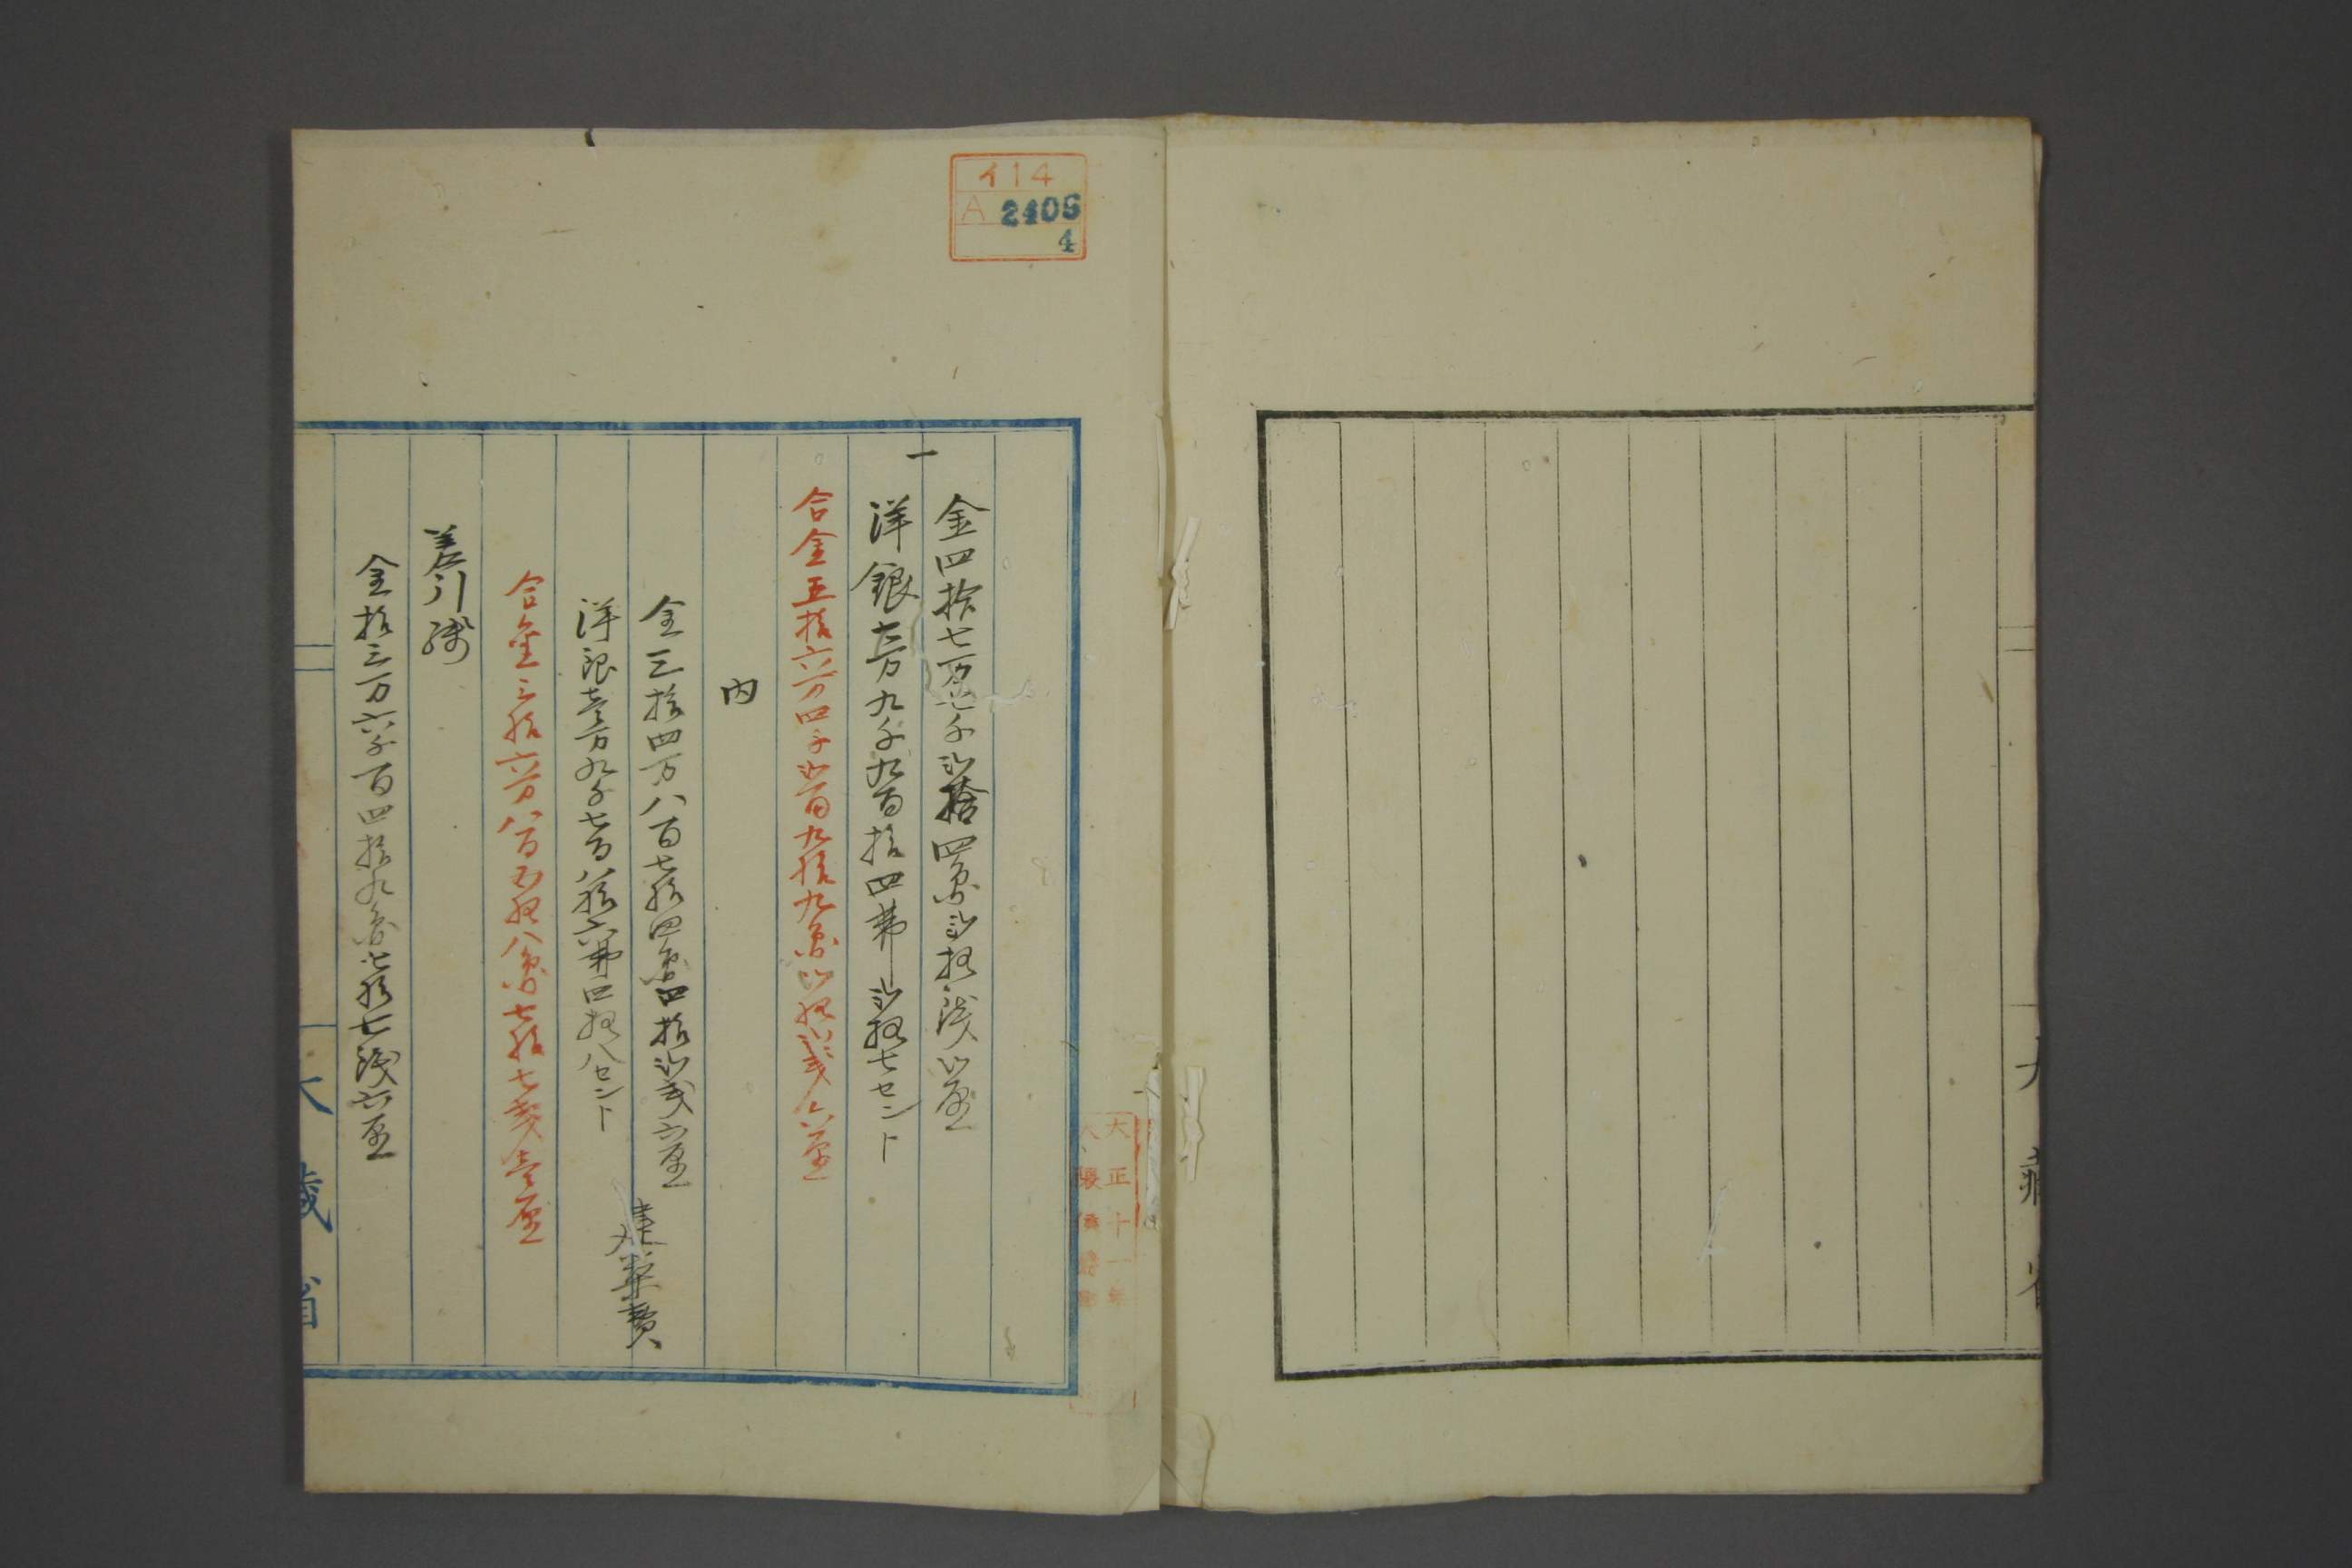 イ14
A 2406
4
大蔵省
一
金四拾七万七千弐拾四円弐拾銭弐厘
洋銀七万九千九百拾四弗弐拾七セント
合金五拾六万四千弐百九拾九円弐拾弐銭六厘
内
金三拾四万八百七拾四円四拾弐銭六厘
洋銀壱万九千七百八拾六弗四拾八セント
建築費
合金三拾六万八百五拾八円七拾七銭壱厘
差引残
金拾三万六千百四拾九円七拾七銭六厘
大蔵省
大正十一年